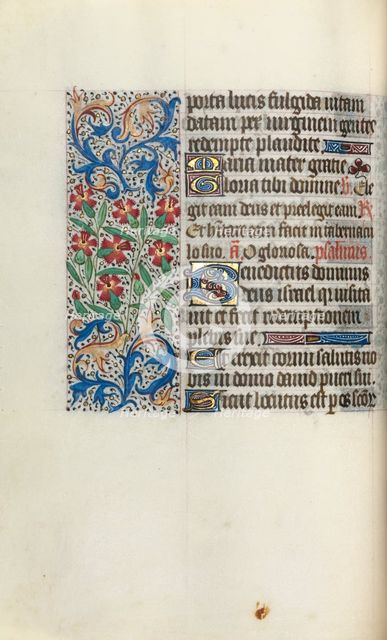 porta lucis fulgida uitam
datam per uirginem gentes
redempte plaudite
Maria mater gratie
Gloria tibi domine Ele
git eam deus et preelegit eam. R
Et habitare facit in tabernacu
lo suo. A O gloriosa. psalmus
Benedictus dominus
deus israel quia uisita
uit et fecit redemptionem
plebis sue
Et erexit cornu salutis no
bis in domo dauid pueri sui.
Sicut locutus est per os scor
Heritage